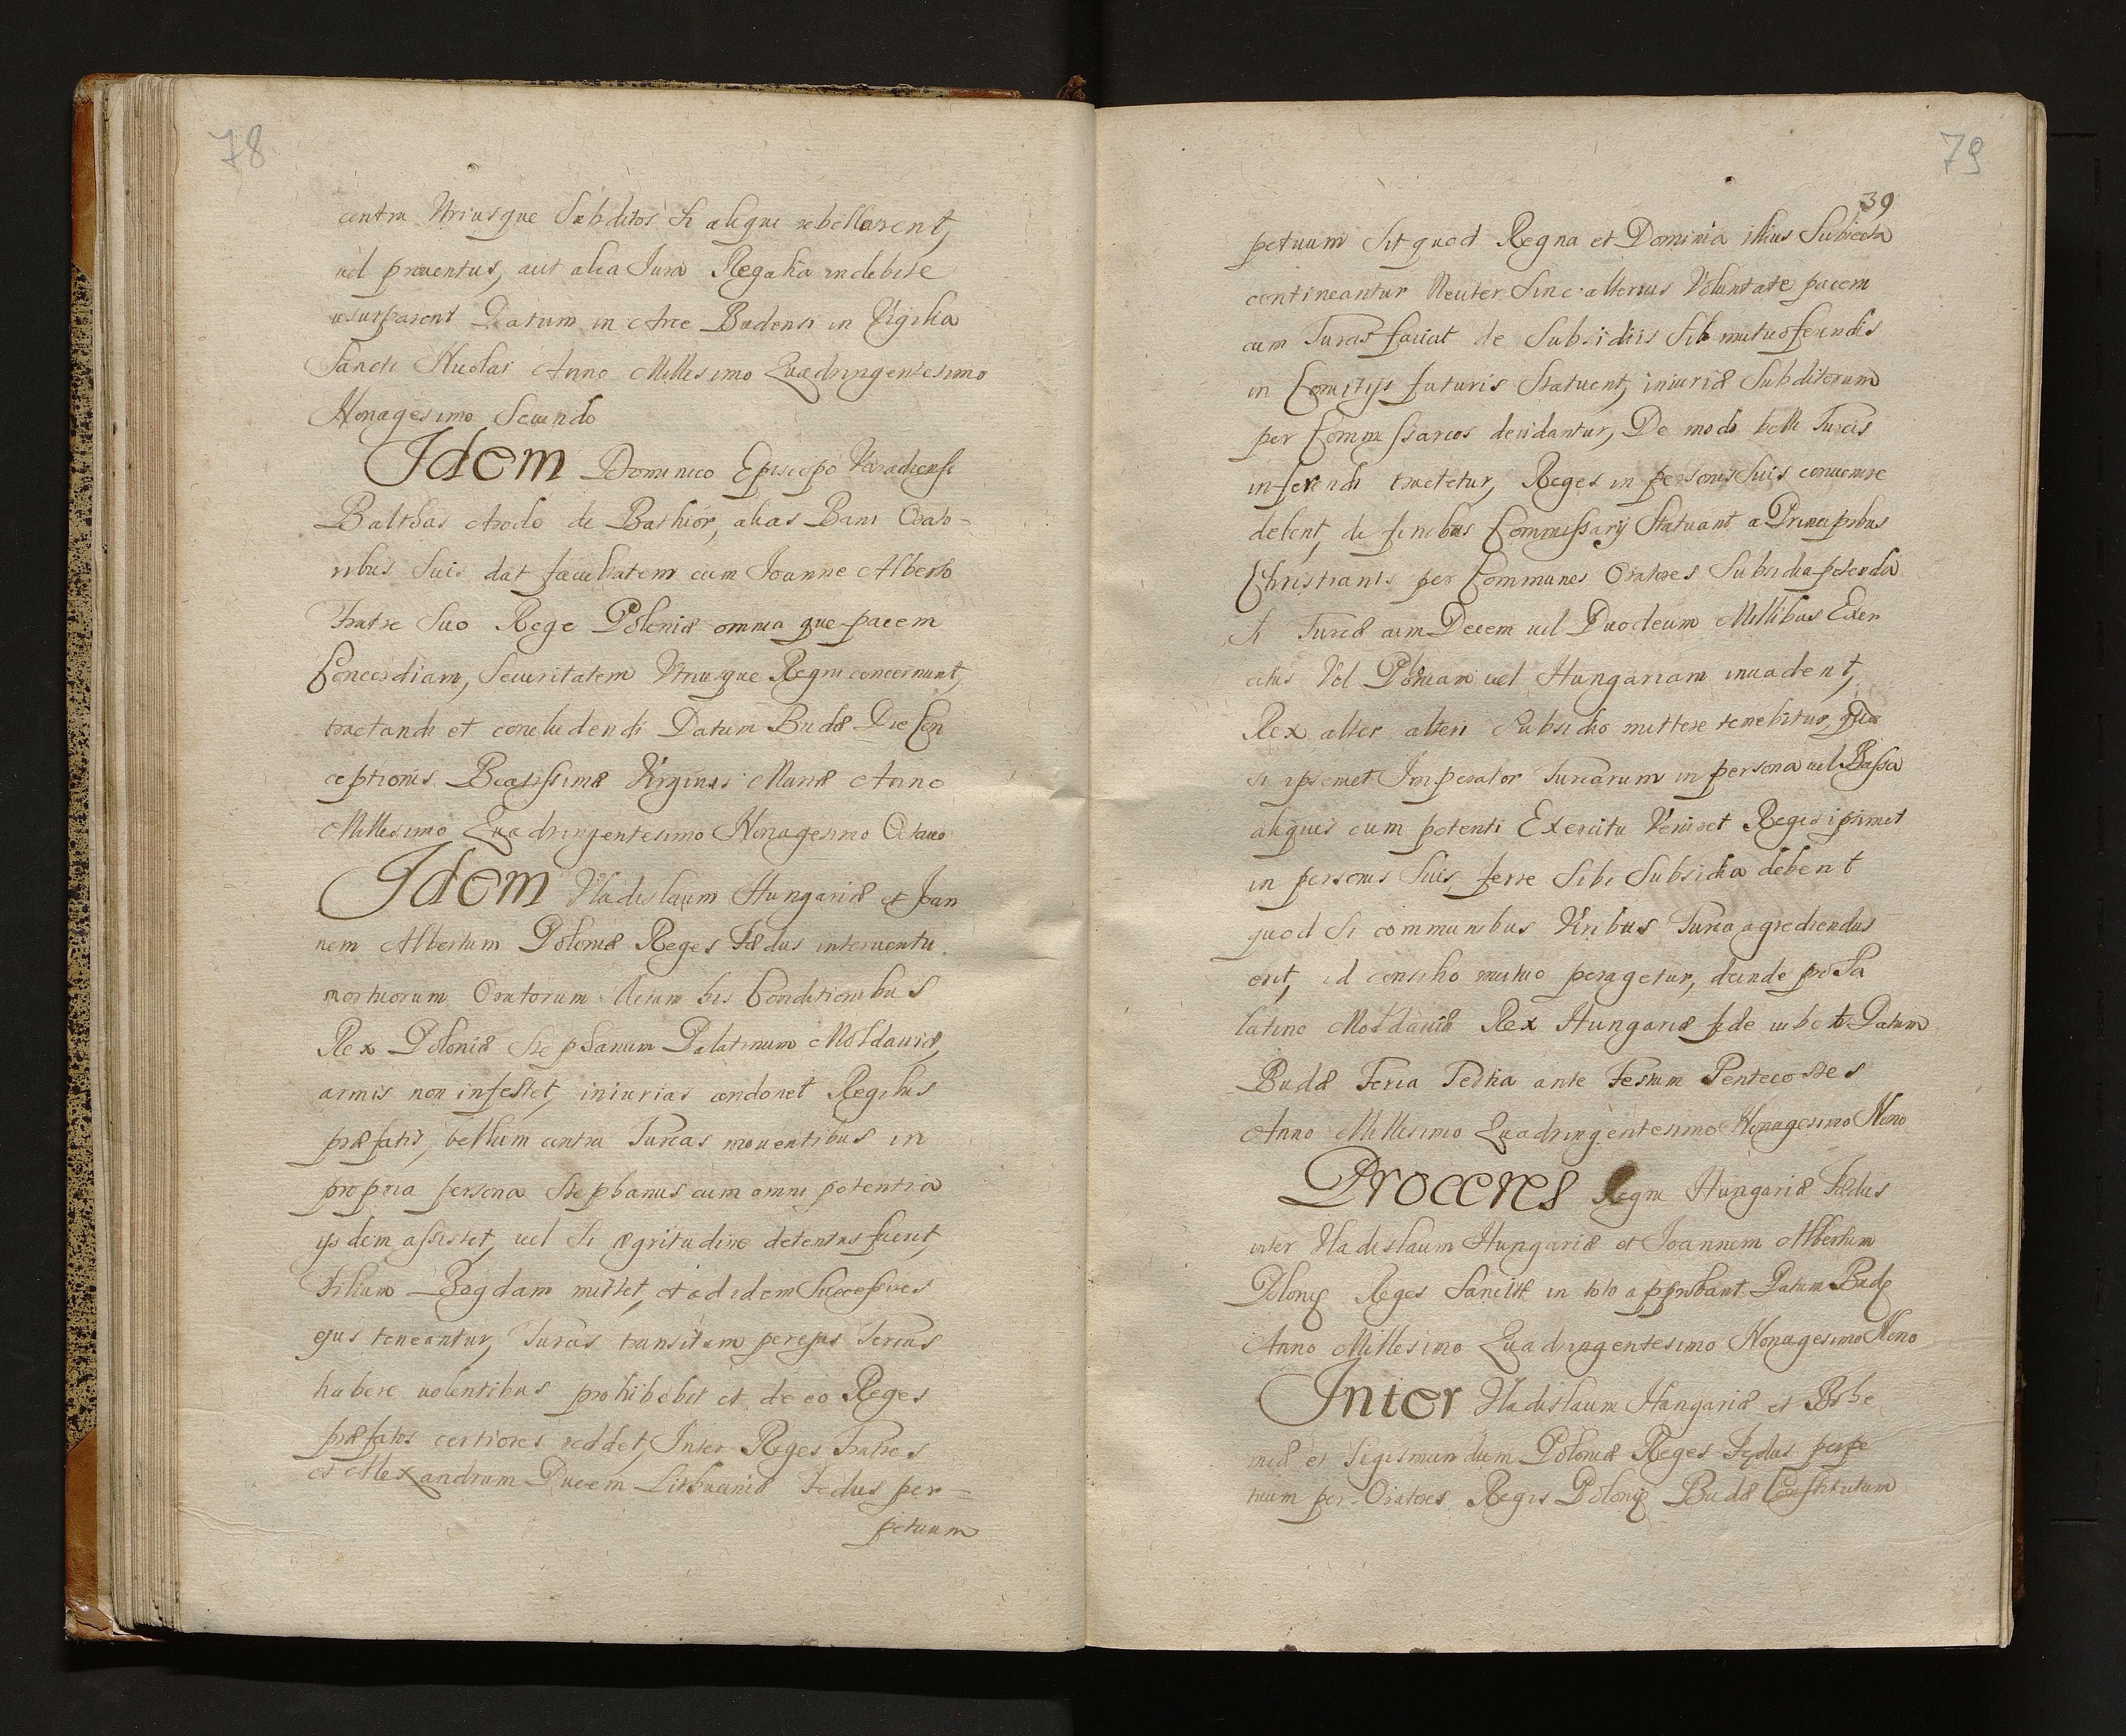 78
contra Vtriusque Subditos Si aliqui rebellarent,
uel prouentus, aut alia Jura Regalia indebite
usurparent Datum in Arce Budensi in Vigilia
Sancti Nicolai Anno Millesimo Quadringentesimo
Nonagesimo Secundo
Idem Dominico Episcopo Varadiensi
Balthas de Bathior, alias Bani Orato-
ribus Suis dat facultatem cum Joanne Alberto
Fratre Suo Rege Poloniæ omnia que pacem
Concordiam, Securitatem Vtriusque Regni concernunt,
tractandi et concludendi Datum Budæ Die Con
ceptionis Beatissimæ Virginis Mariæ Anno
Millesimo Quadringentesimo Nonagesimo Octauo
Idem Vladislaum Hungariæ et Joan
nem Albertum Poloniæ Reges Fædus interuentu
nortuorum Oratorum his Conditionibus
Rex Poloniæ Stephanum Palatinum Moldauiæ,
armis non infestet, iniurias condonet Regibus
præfatis, bellum contra Turcas mouentibus in
propria persona Stephanus cum omni potentia
ijsdem assistet, uel Si ægritudine detentus fuerit,
Filium Bogdam mittet, et ad idem Successores
ejus teneantur, Turcis transitum per ejus Terras
habere uolentibus prohibebit et de eo Reges
præfatos certiores reddet, Inter Reges Fratres
et Alexandrum Ducem Lithuaniæ Fedus per=
petuum
79
39
petuum Sit quod Regna et Dominia illius Subiecta
contineantur Neuter Sine alterius Voluntate pacem
cum Turcis faciat de Subsidiis Sibi mutuo ferendis
in Comitijs futuris Statuent, iniuriæ Subditorum
per Commissarios decidantur, De modo belli Turcis
inferendi tractetur, Reges in personis Suis conuenire
debent, de finibus Commissarij Statuant a Principibus
Christianis per Communes Oratores Subsidia petenda
Si Turcæ cum Decem uel Duodecim Millibus Exer
citus Vel Poloniam uel Hungariam inuadent,
Rex alter alteri Subsidio mittere tenebitur, quod
si ipsemet Imperator Turcarum in persona uel Bassa
aliquis cum potenti Exercitu Veniret Reges ipsimet
in personis Suis ferre Sibi Subsidia debent
quod Si communibus Viribus Turca agrediendus
erit, id consilio mutuo peragetur, deinde pro Pa
latino Moldauiæ Rex Hungariæ fide iubet Datum
Budæ Feria Tertia ante Festum Pentecostes
Anno Millesimo Quadringentesimo Nonagesimo Nono
Proceres Regni Hungariæ Fædus
inter Vladislaum Hungariæ et Joannem Albertum
Polonię Reges Sancitæ in toto approbant Datum Budę
Anno Millesimo Quadringentesimo Nonagesimo Nono
Inter Vladislaum Hungariæ et Bohe
miæ et Sigismundum Poloniæ Reges Fędus perpe
tuum per Oratores Regis Polonię Budæ Constitutum